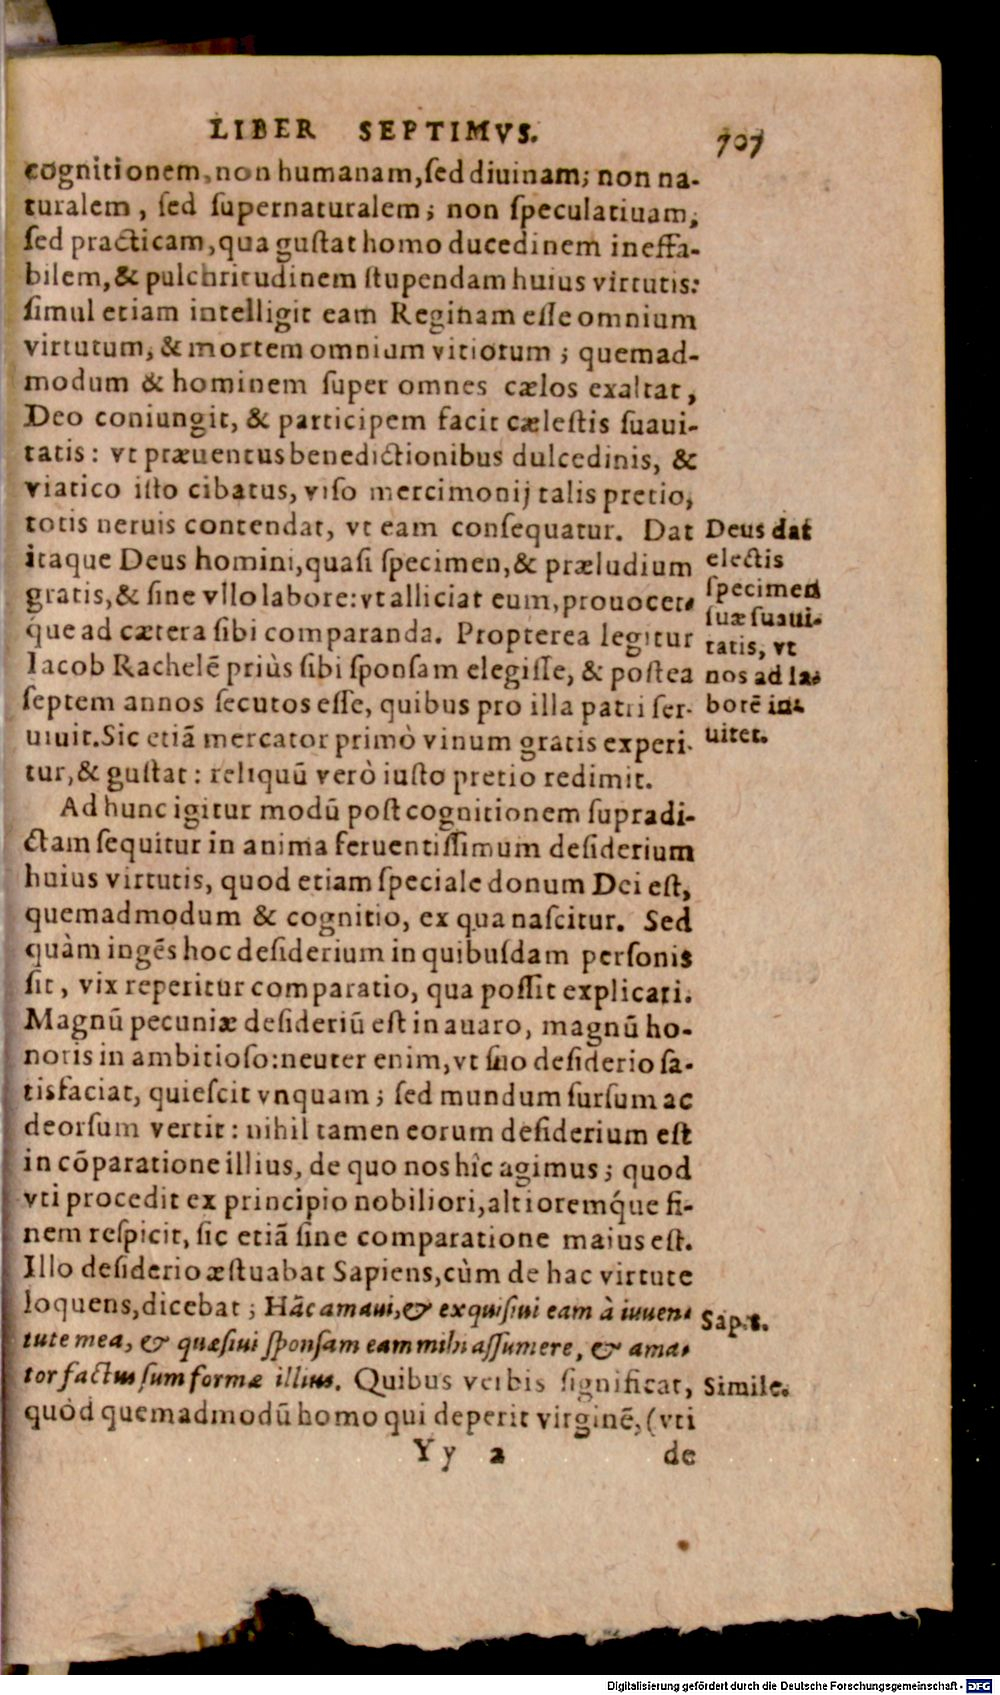 LIBER SEPTIMVS. 707
cognitionem, non humanam, ſed diuinam; non na-
turalem, ſed ſupernaturalem; non ſpeculatiuam,
ſed practicam, qua guſtat homo ducedinem ineffa-
bilem, & pulchritudinem ſtupendam huius virtutis:
ſimul etiam intelligit eam Reginam eſſe omnium
virtutum, & mortem omnium vitiorum; quemad-
modum & hominem ſuper omnes cælos exaltat,
Deo coniungit, & participem facit cæleſtis ſuaui-
tatis: vt præuentus benedictionibus dulcedinis, &
viatico iſto cibatus, viſo mercimonij talis pretio,
totis neruis contendat, vt eam conſequatur. Dat
itaque Deus homini, quaſi ſpecimen, & præludium
gratis, & ſine vllo labore: vt alliciat eum, prouocet-
q́ue ad cætera ſibi comparanda. Propterea legitur
Iacob Rachelē priùs ſibi ſponſam elegiſſe, & poſtea
ſeptem annos ſecutos eſſe, quibus pro illa patri ſer-
uiuit. Sic etiā mercator primò vinum gratis experi-
tur, & guſtat: reliquū verò iuſto pretio redimit.
Deus dat
electis
ſpecimen
ſuæ ſuaui-
tatis, vt
nos ad la-
borē in-
uitet.
Ad hunc igitur modū poſt cognitionem ſupradi-
ctam ſequitur in anima feruentiſſimum deſiderium
huius virtutis, quod etiam ſpeciale donum Dei eſt,
quemadmodum & cognitio, ex qua naſcitur. Sed
quàm ingēs hoc deſiderium in quibuſdam perſonis
ſit, vix reperitur comparatio, qua poſſit explicari.
Magnū pecuniæ deſideriū eſt in auaro, magnū ho-
noris in ambitioſo: neuter enim, vt ſuo deſiderio ſa-
tisfaciat, quieſcit vnquam; ſed mundum ſurſum ac
deorſum vertit: nihil tamen eorum deſiderium eſt
in cōparatione illius, de quo nos hîc agimus; quod
vti procedit ex principio nobiliori, altioremq́ue fi-
nem reſpicit, ſic etiā ſine comparatione maius eſt.
Illo deſiderio æſtuabat Sapiens, cùm de hac virtute
loquens, dicebat; Hāc amaui, & exquiſiui eam à iuuen-
tute mea, & quæſiui ſponſam eam mihi aſſumere, & ama-
tor factus ſum formæ illius. Quibus verbis ſignificat,
quòd quemadmodū homo qui deperit virginē, (vti
Sap. 8.
Simile.
Yy 2 de
Digitalisierung gefördert durch die Deutsche Forschungsgemeinschaft - DFG